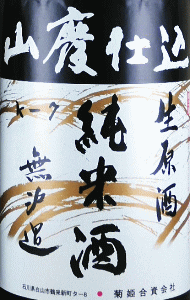 山廃仕込
生原酒
純米酒
無ろ過
菊姫合資会社
石川県白山市鶴来新町タ-8